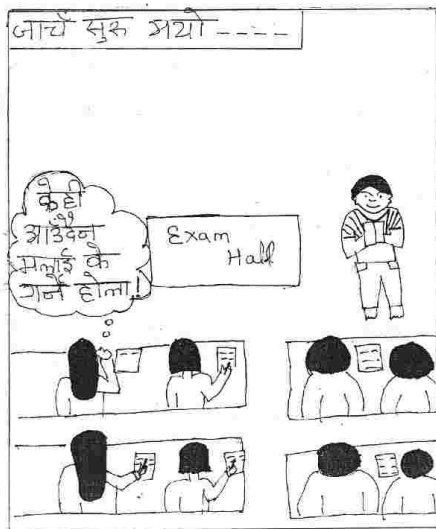 जाचँ सुरु भयो ----
केही
आउँदैन
मलाई के
गर्ने होला!!
Exam
Hall